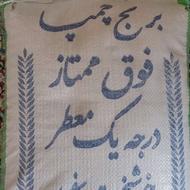 برنج چمپا
فوق ممتاز
درجه یک معطر